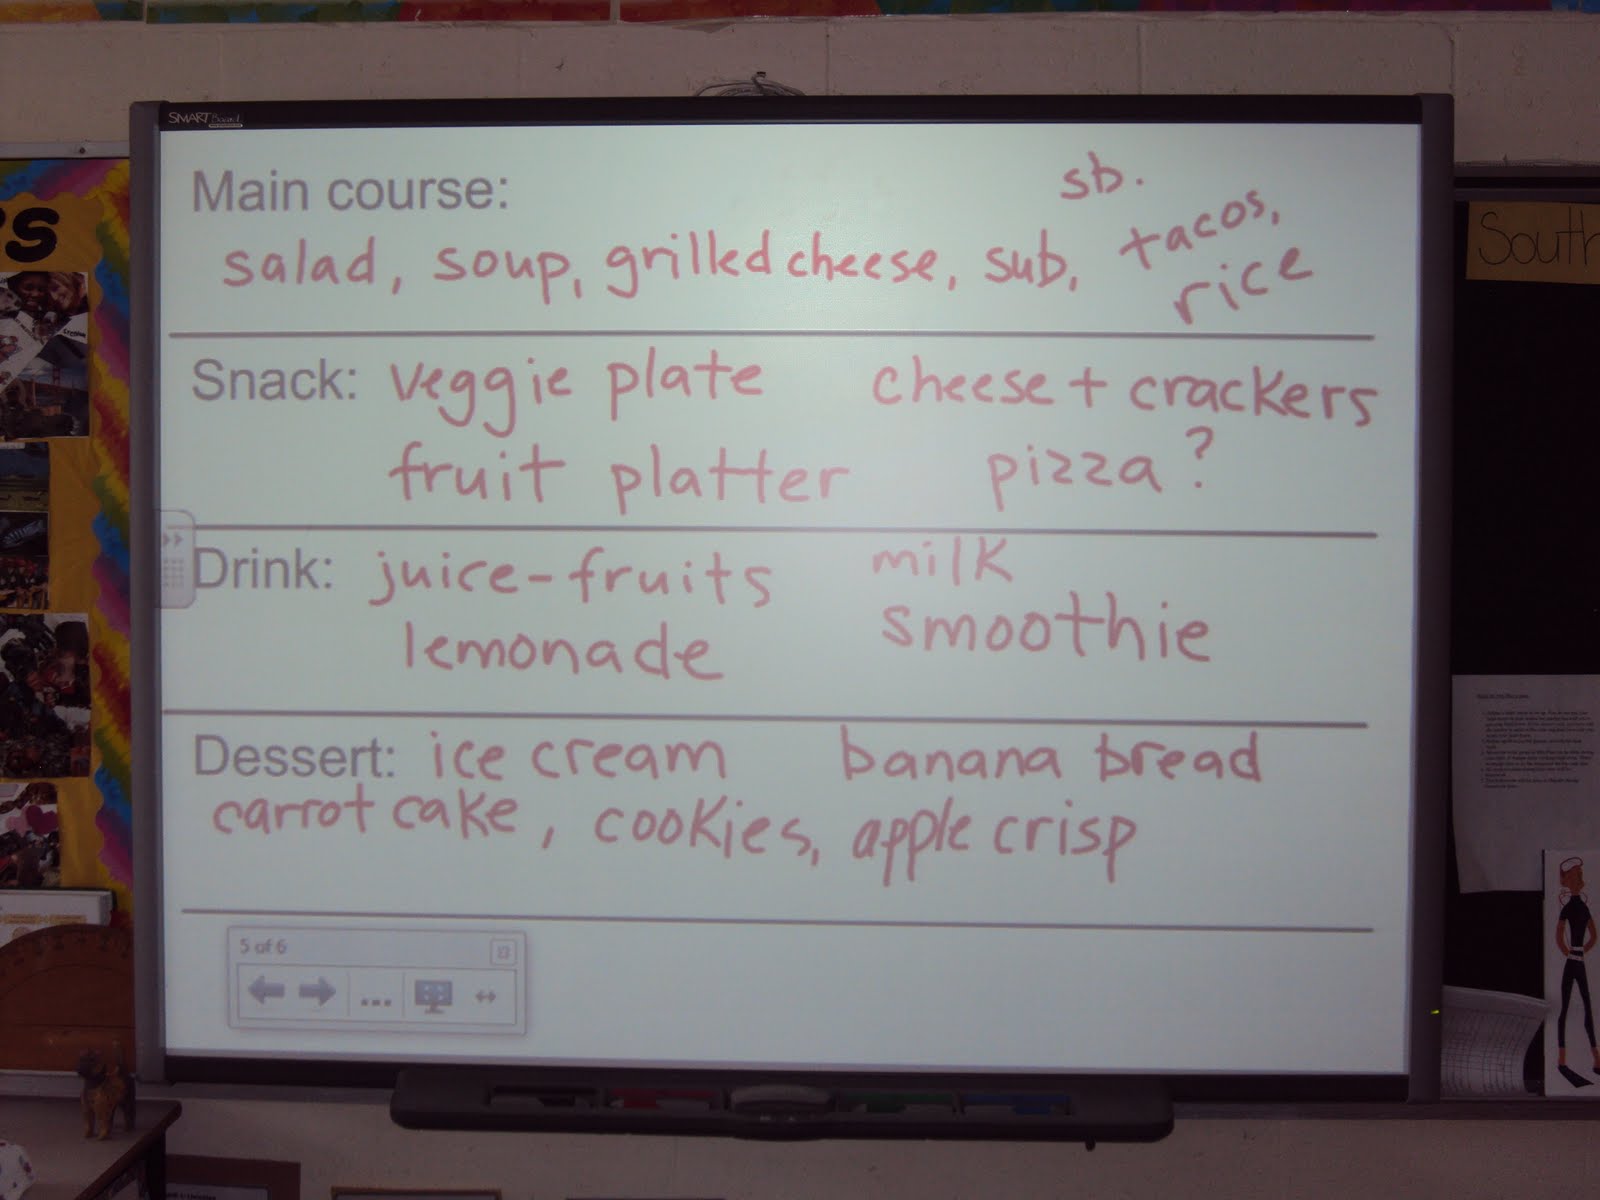 SMART Board
Main course:
sb.
salad, soup, grilled cheese, sub, tacos,
rice
Snack: veggie plate cheese + crackers
fruit platter pizza?
Drink: juice-fruits milk
lemonade smoothie
Dessert: ice cream banana bread
carrot cake, cookies, apple crisp
5 of 6
South